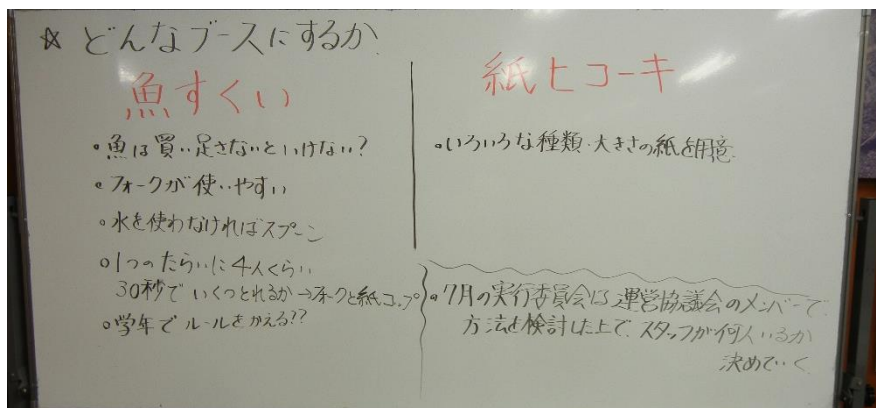 ☆ どんなブースにするか
魚すくい
・魚は買い足さないといけない?
・フォークが使いやすい
・水を使わなければスプーン
・1つのたらいに4人くらい
30秒でいくつとれるか→フォークと紙コップ
・学年でルールをかえる??
紙ヒコーキ
・いろいろな種類・大きさの紙を用意
・7月の実行委員会は運営協議会のメンバーで
方法を検討した上で、スタッフが何人いるか
決めていく